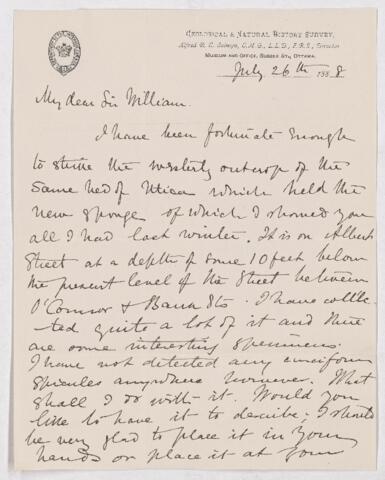 GEOLOGICAL & NATURAL HISTORY SURVEY,
Alfred R. C. Selwyn, C.M.G., L.L.D., F.R.S., Director
MUSEUM AND OFFICE, SUSSEX ST., OTTAWA.
July 26th 1888
My dear Sir William.
I have been fortunate enough
to strike the westerly outcrop of the
same bed of Utica which held the
new sponge of which I showed you
all I had last winter. It is on Albert
Street at a depth of some 10 feet below
the present level of the Street between
O'Connor & Bank Sts. I have collec-
ted quite a lot of it and there
are some interesting specimens.
I have not detected any cruciform
spicules anywhere however. What
shall I do with it. Would you
like to have it to describe; I should
be very glad to place it in your
hands or place it at your